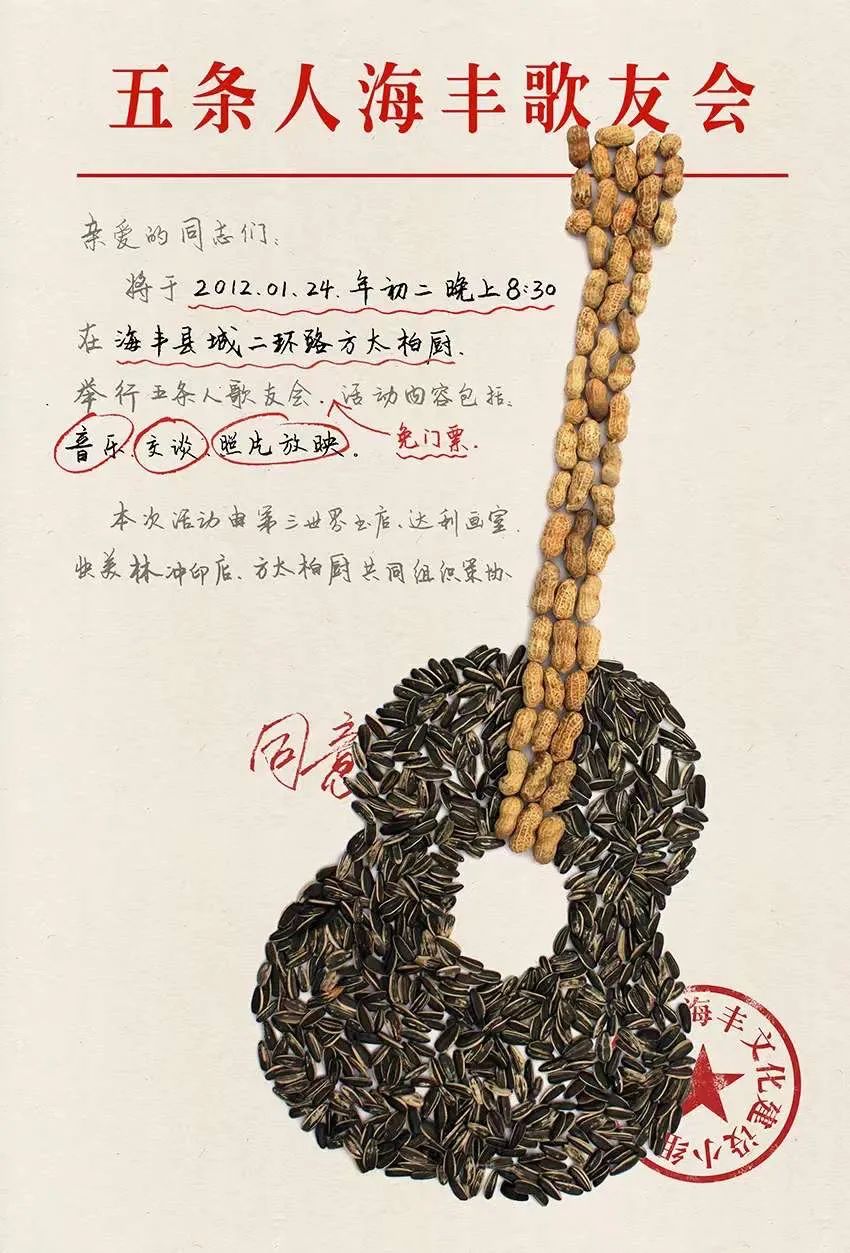 五条人海丰歌友会
亲爱的同志们：
将于 2012.01.24.年初二晚上8:30
在 海丰县城二环路方太柏厨.
举行五条人歌友会. 活动内容包括:
音乐.交谈.照片放映.
免门票.
本次活动由第三世界书店.达利画室.
快美林冲印店.方太柏厨共同组织策协.
同意
海丰文化建设小组